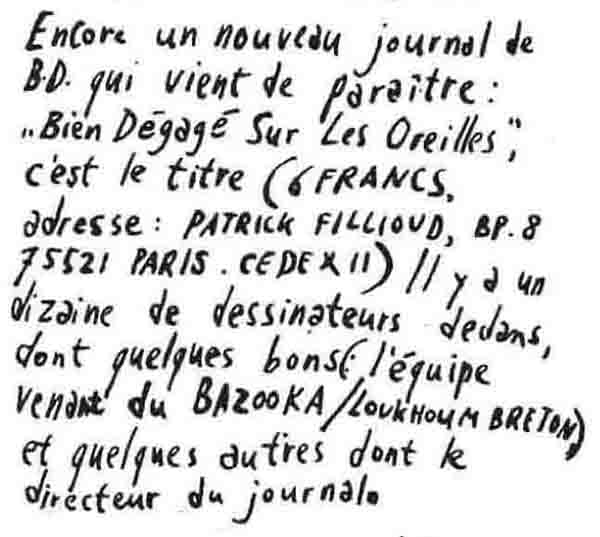 Encore un nouveau journal de
B.D. qui vient de paraître :
"Bien Dégagé Sur Les Oreilles",
c'est le titre (6 FRANCS,
adresse : PATRICK FILLIOUD, BP. 8
75521 PARIS. CEDEX 11) Il y a un
dizaine de dessinateurs dedans,
dont quelques bons (l'équipe
venant du BAZOOKA/LOUKHOUM BRETON)
et quelques autres dont le
directeur du journal.